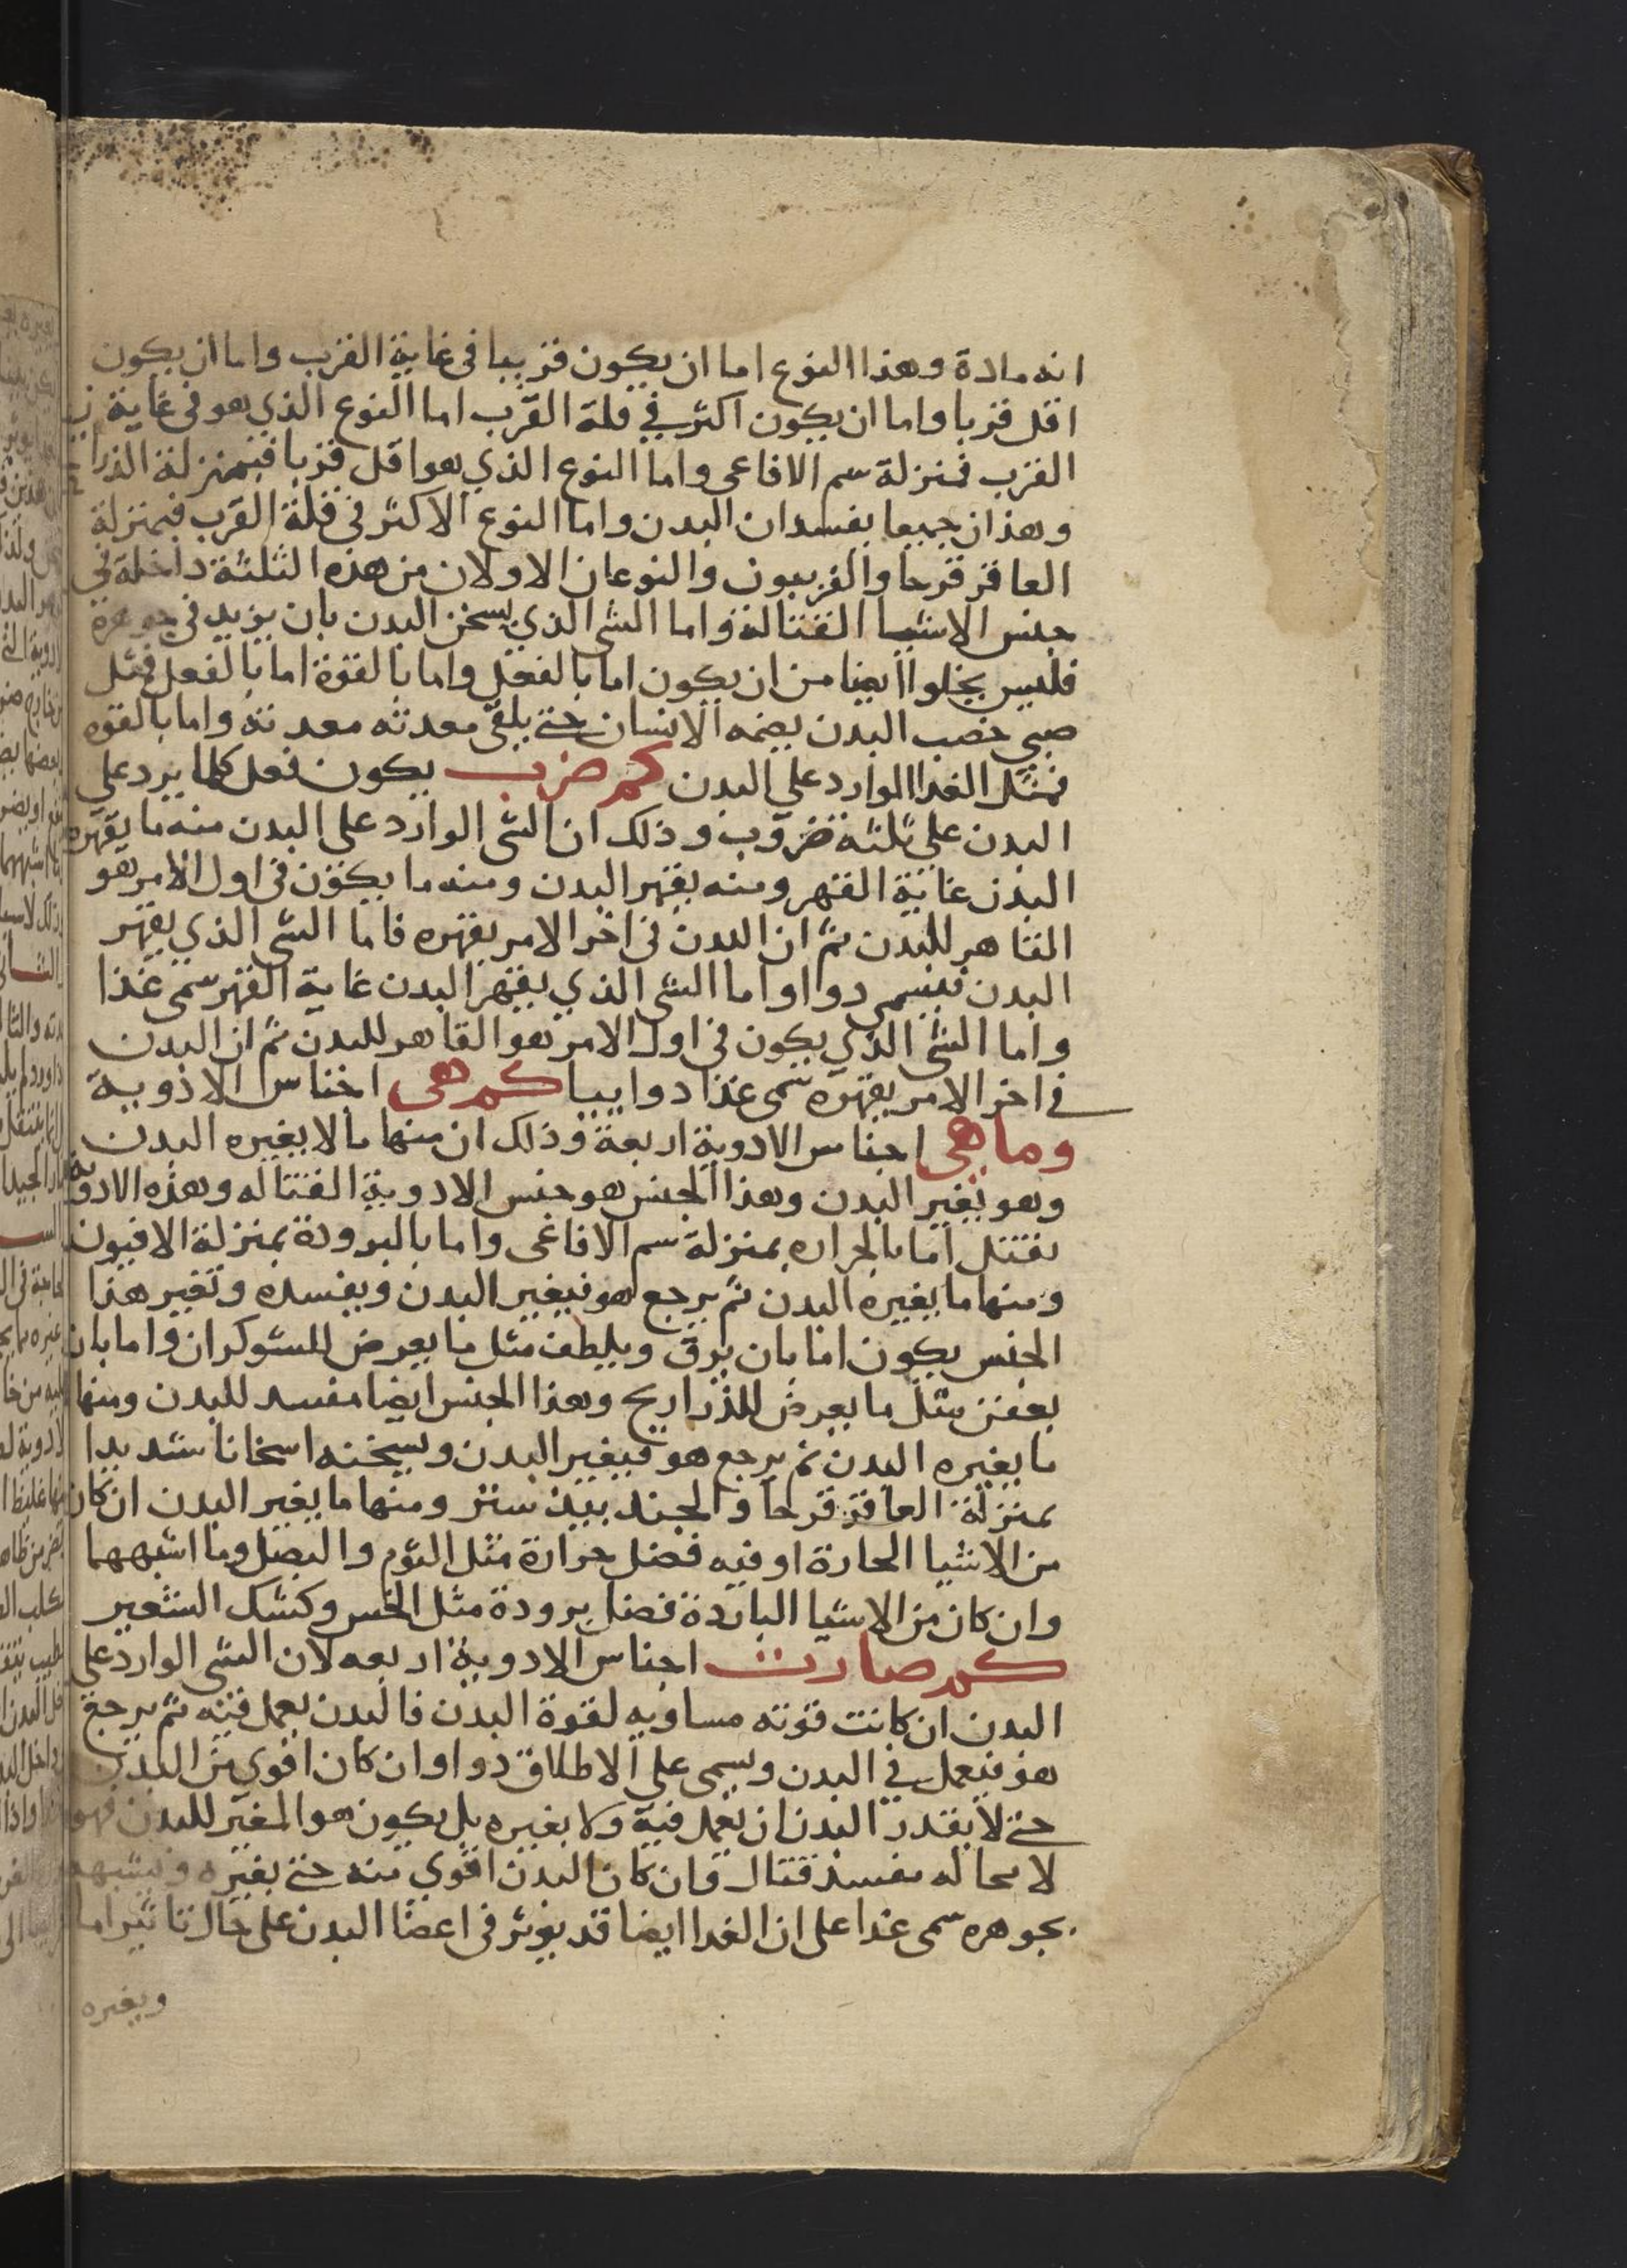 انه مادة وهذا النوع اما ان يكون قريبا فى غاية القرب واما ان يكون
اقل قربا واما ان يكون اكثر في قلة القرب اما النوع الذي هو فى غاية
القرب فمنزلة سم الافاعى واما النوع الذي هو اقل قربا فبمنزلة الذراريح
وهذان جميعا يفسدان البدن واما النوع الاكثر فى قلة القرب فبمنزلة
العاقر قرحا والفربيون والنوعان الاولان من هذه الثلثة داخلة فى
جنس الاشيا القتالة واما الشى الذي يسخن البدن بان يزيد فى جوهرة
فليس يخلوا ايضا من ان يكون اما بالفعل واما بالقوة اما بالفعل فمثل
صبي خصب البدن يضمه الانسان حتى يلقى معدته معدته واما بالقوه
فمثل الغدا الوارد على البدن كم ضرب يكون فعل كلما يرد على
البدن على ثلثه ضروب وذلك ان الشى الوارد على البدن منه ما يقهره
البدن غاية القهر ومنه يقهر البدن ومنه ما يكون فى اول الامر هو
القاهر للبدن ثم ان البدن فى اخر الامر يقهره فاما الشى الذي يقهر
البدن فيسمى دوا واما الشى الذي يقهر البدن غاية القهر سمى غذا
واما الشى الذي يكون فى اول الامر هو القاهر للبدن ثم ان البدن
فى اخر الامر يقهره سمى غذا دواييا كم هى اجناس الادوية
وما هى اجناس الادوية اربعة وذلك ان منها ما لا يغيره البدن
وهو يغير البدن وهذا الجنس هو جنس الادوية القتاله وهذه الادوية
تقتل اما بالحراره بمنزلة سم الافاعى واما بالبرودة بمنزلة الافيون
ومنها ما يغيره البدن ثم يرجع هو فيغير البدن ويفسده وتغيير هذا
الجنس يكون اما بان يرق ويلطف مثل ما يعرض للشوكران واما بان
يعفن مثل ما يعرض للذراريح وهذا الجنس ايضا مفسد للبدن ومنها
ما يغيره البدن ثم يرجع هو فيغير البدن ويسخنه اسخانا شديدا
بمنزلة العاقر قرحا والجند بيد ستر ومنها ما يغير البدن ان كان
من الاشيا الحارة او فيه فضل حرارة مثل الثوم والبصل وما اشبههما
وان كان من الاشيا الباردة فضل برودة مثل الخس وكشك الشعير
كم صارت اجناس الادوية اربعه لان الشى الوارد على
البدن ان كانت قوته مساويه لقوة البدن فالبدن يعمل فيه ثم يرجع
هو فيعمل في البدن ويسمى على الاطلاق دوا وان كان اقوي من البدن
حتى لا يقدر البدن ان يعمل فيه ولا يغيره بل يكون هو المغير للبدن فهو
لا محاله مفسد قتال وان كان البدن اقوي منه حتى يغيره ويشبهه
بجوهره سمى غدا على ان الغدا ايضا قد يوثر فى اعضا البدن على حال تاثيرا ما
ويغيره